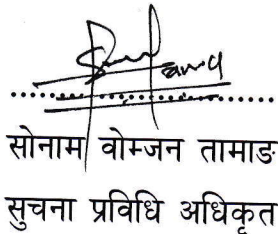 सोनाम वोम्जन तामाङ
सुचना प्रविधि अधिकृत